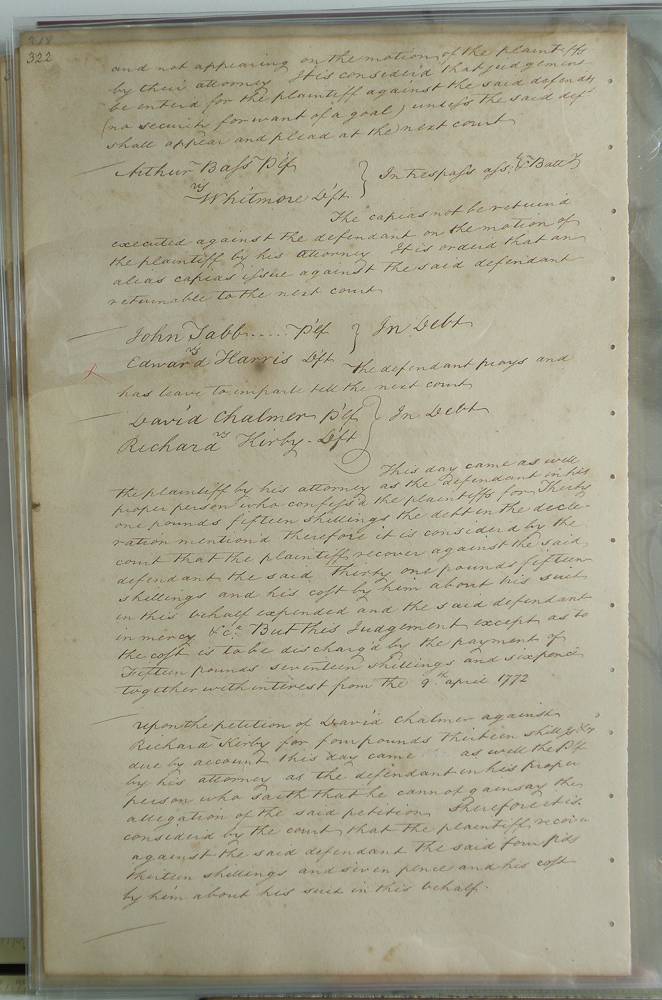 318
322
and not appearing on the motion of the plaintiffs
by their attorney It is consider'd that judgement
be enterd for the plaintiff against the said defendt
(no security for want of a goal) unless the said deft
shall appear and plead at the next court
Arthur Bass Plf
vs } In trespass ass. & Batty
Whitmore Dft
The capias not be returnd
executed against the defendant on the motion of
the plaintiff by his attorney It is orderd that an
alias capias issue against the said defendant
returnable to the next court
John Tabb ..... Plf
vs } In Debt
Edward Harris Dft the defendant prays and
has leave to imparle till the next court
David Chalmer Plf
vs } In Debt
Richard Kirby - Dft
This day came as well
the plaintiff by his attorney as the defendant in his
proper person who confess'd the plaintiffs for Therty
one pounds fifteen shillings the debt in the decle-
ration mention'd therefore it is considerd by the
court that the plaintiff recover against the said
defendant the said thirty one pounds fifteen
shillings and his cost by him about his suit
in this behalf expended and the said defendant
in mercy &c. But this Judgement except as to
the cost is to be discharg'd by the payment of
Fifteen pounds seventeen shillings and sixpence
together with interest from the 9th april 1772
Upon the petition of David Chalmer against
Richard Kerby for four pounds thirteen shillgs &
due by account this day came as well the Plf
by his attorney as the defendant in his proper
person who saith that he cannot gainsay the
allegation of the said petition Therefore it is
considerd by the court that the plaintiff recover
against the said defendant the said four pds
thirteen shillings and seven pence and his cost
by him about his suit in this behalf.